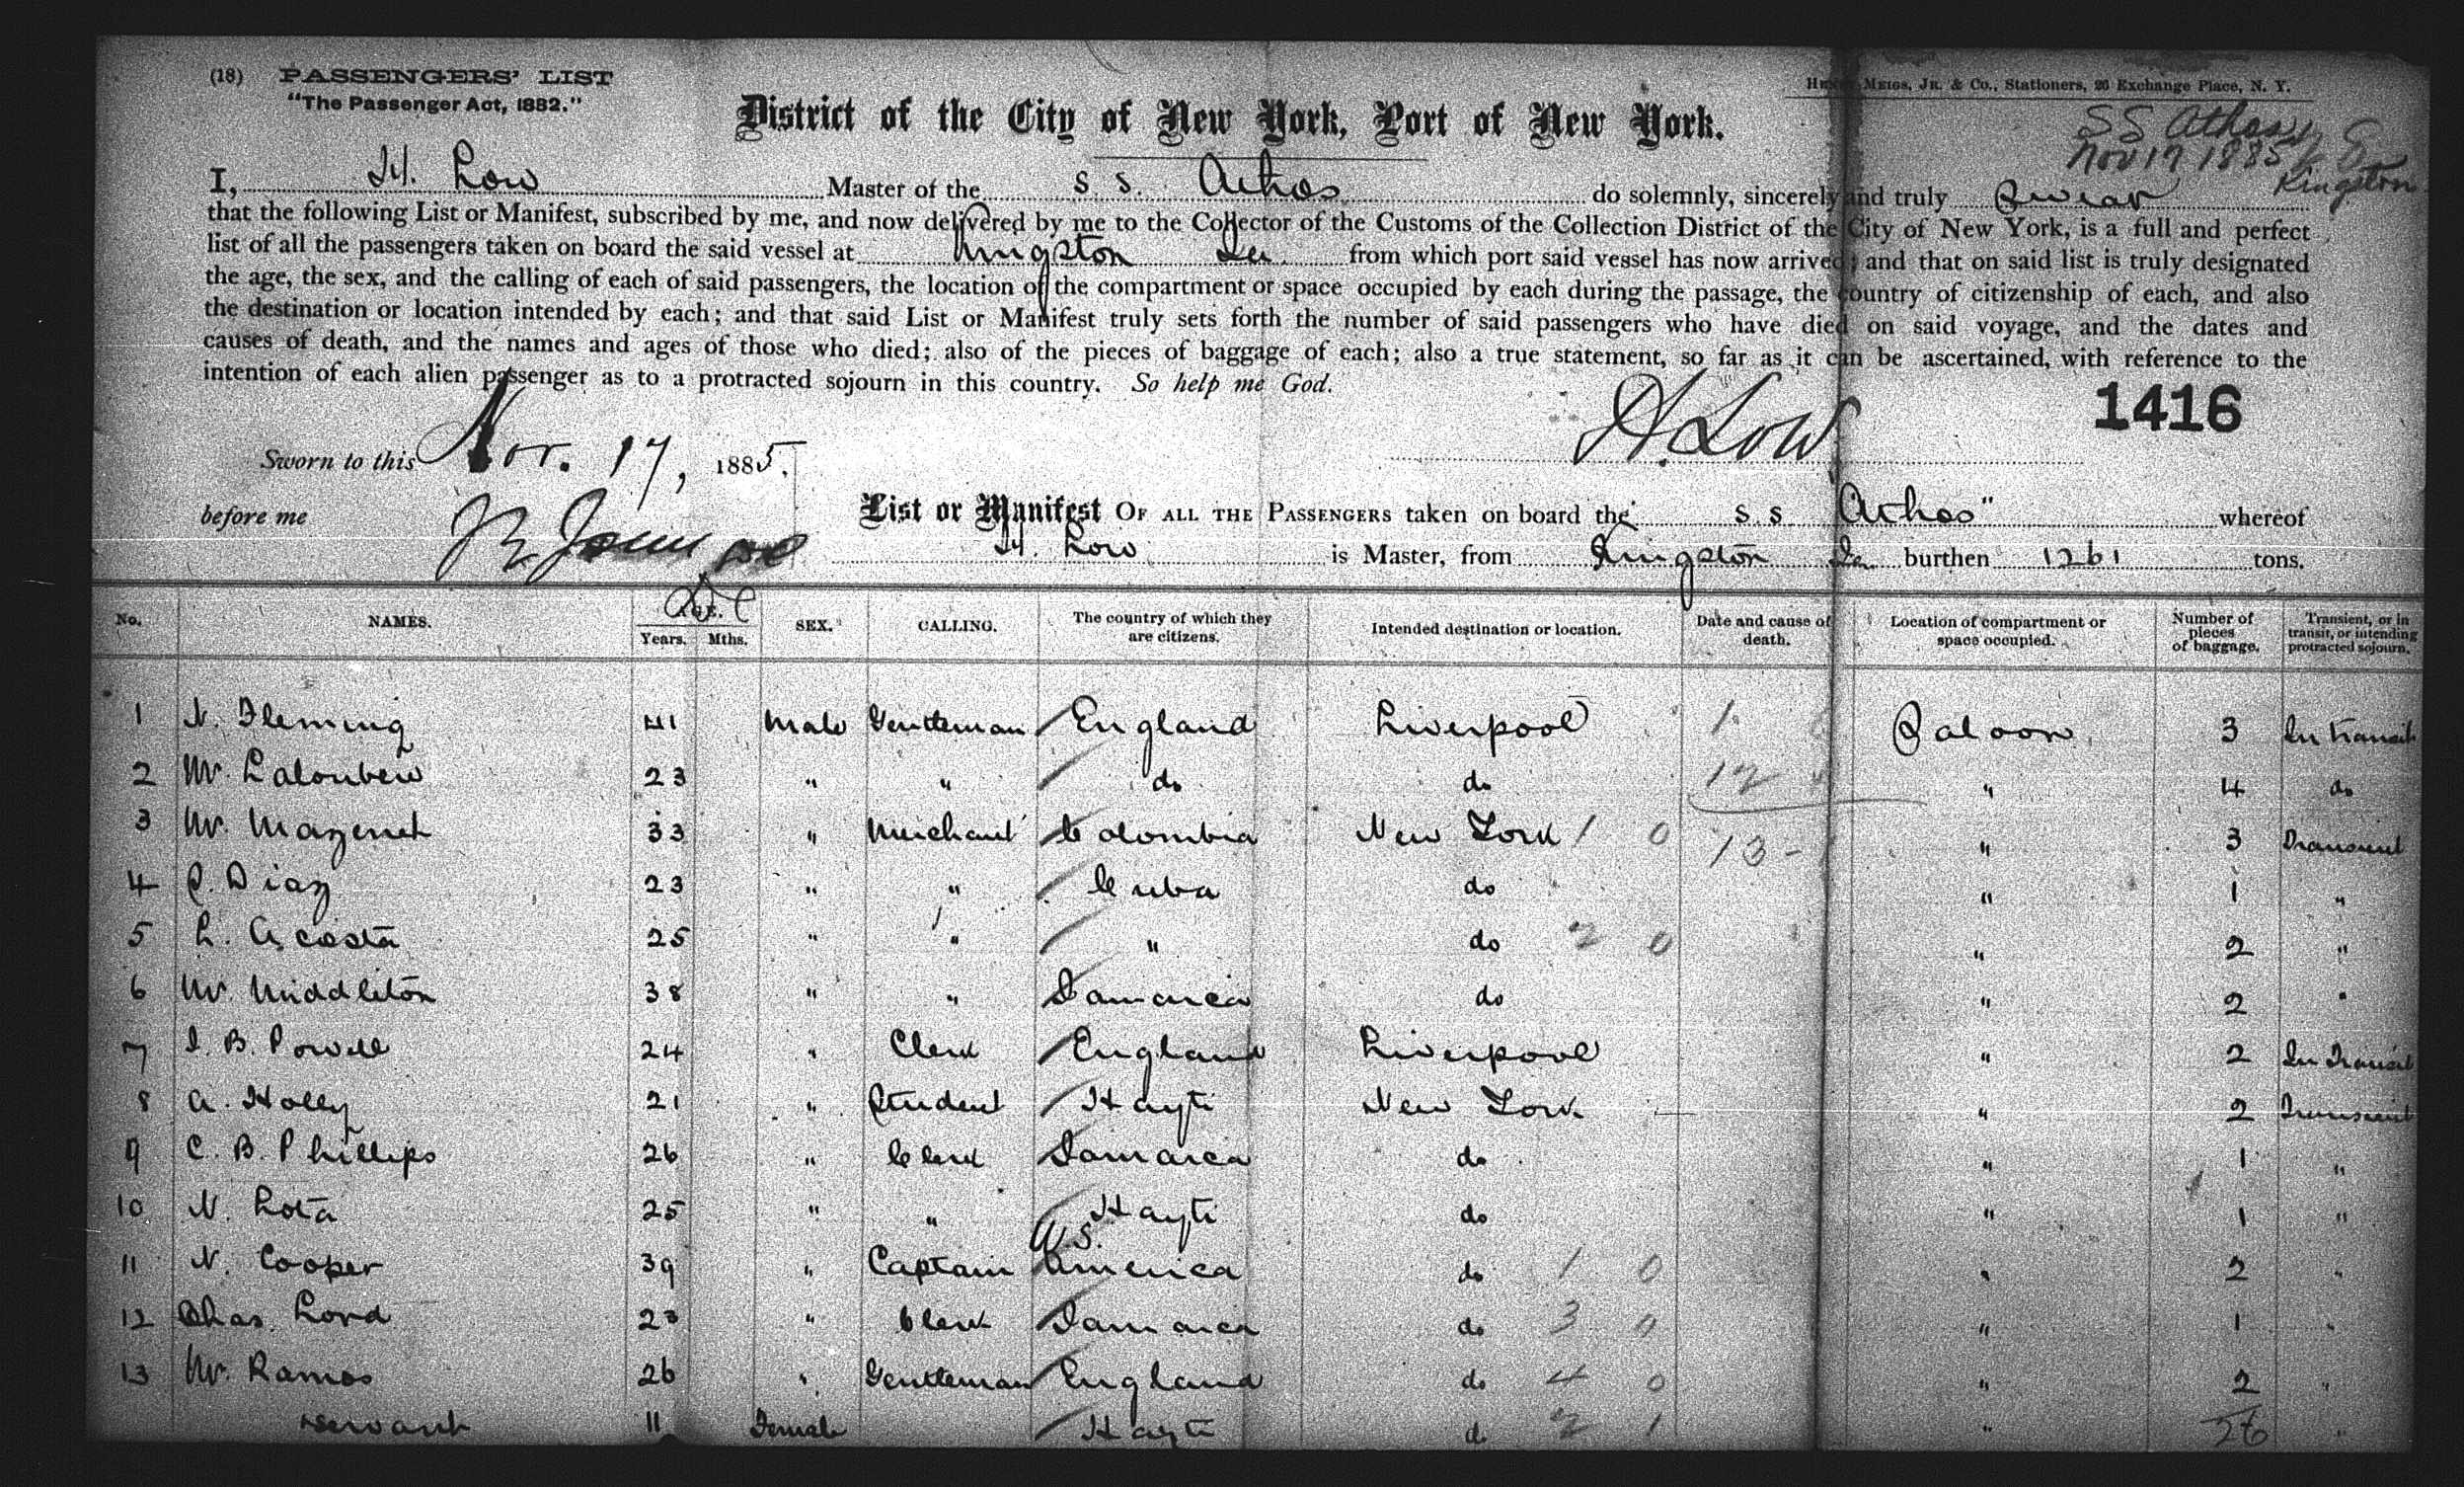 (18) PASSENGERS' LIST
"The Passenger Act, 1882."
HENRY MEIGS, JR. & CO., Stationers, 96 Exchange Place, N. Y.
District of the City of New York, Port of New York.
SS Athos
Nov 17 1885
Kingston
I, H. Low Master of the S. S. Athos do solemnly, sincerely and truly Swear
that the following List or Manifest, subscribed by me, and now delivered by me to the Collector of the Customs of the Collection District of the City of New York, is a full and perfect
list of all the passengers taken on board the said vessel at Kingston Ja from which port said vessel has now arrived; and that on said list is truly designated
the age, the sex, and the calling of each of said passengers, the location of the compartment or space occupied by each during the passage, the country of citizenship of each, and also
the destination or location intended by each; and that said List or Manifest truly sets forth the number of said passengers who have died on said voyage, and the dates and
causes of death, and the names and ages of those who died; also of the pieces of baggage of each; also a true statement, so far as it can be ascertained, with reference to the
intention of each alien passenger as to a protracted sojourn in this country. So help me God.
1416
Sworn to this Nov. 17, 1885. H. Low
before me
List or Manifest OF ALL THE PASSENGERS taken on board the S. S "Athos" whereof
H. Low is Master, from Kingston Ja burthen 1261 tons.
No. NAMES. AGE. Years. Mths. SEX. CALLING. The country of which they are citizens. Intended destination or location. Date and cause of death. Location of compartment or space occupied. Number of pieces of baggage. Transient, or in transit, or intending protracted sojourn.
1 N. Fleming 41 Male Gentleman England Liverpool 1 Saloon 3 In transit
2 Mr. 23 " " do do 12 " 4 do
3 Mr. Mazenet 33 " Merchant Colombia New York 1 0 13 - 1 " 3 Transient
4 P. Diaz 23 " " Cuba do " 1 "
5 L. Acosta 25 " " " do 2 0 " 2 "
6 Mr. Middleton 38 " " Jamaica do " 2 "
7 I. B. Powell 24 " Clerk England Liverpool " 2 In Transit
8 A. Holly 21 " Student Hayti New York " 2 Transient
9 C. B. Phillips 26 " Clerk Jamaica do " 1 "
10 N. Lota 25 " " Hayti do " 1 "
11 N. Cooper 39 " Captain U.S. America do 1 0 " 2 "
12 Chas. Lord 23 " Clerk Jamaica do 3 0 " 1 "
13 Mr. Ramos 26 " Gentleman England do 4 0 " 2 "
servant 11 Female Hayti do 2 1 " 26 "